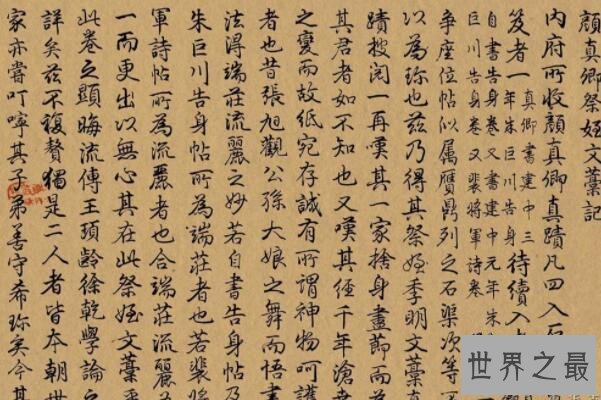 顏真卿祭姪文藁記
內府所收顏真卿真蹟凡四入石
笈者一真卿書建中三年朱巨川告身待續入
自書告身卷又書建中元年朱
巨川告身卷又裴將軍詩卷
争座位帖似属贋鼎列之石渠次等
以為珎也兹乃得其祭姪季明文藁
蹟披閱一再嘆其一家捨身盡節而為
其君者如不知也又嘆其經千年滄
之變而故紙宛存誠有所謂神物呵護
者也昔張旭觀公孫大娘之舞而悟書
法得端莊流麗之妙若自書告身帖
朱巨川告身帖所為端莊者也若裴將
軍詩帖所為流麗者也合端莊流麗為
一而更出以無心其在此祭姪文藁乎
此卷之顯晦流傳王頊齡徐乾學論之
詳矣兹不復贅獨是二人者皆本朝世
家亦嘗叮嚀其子弟善守希珎矣今其
世界之最